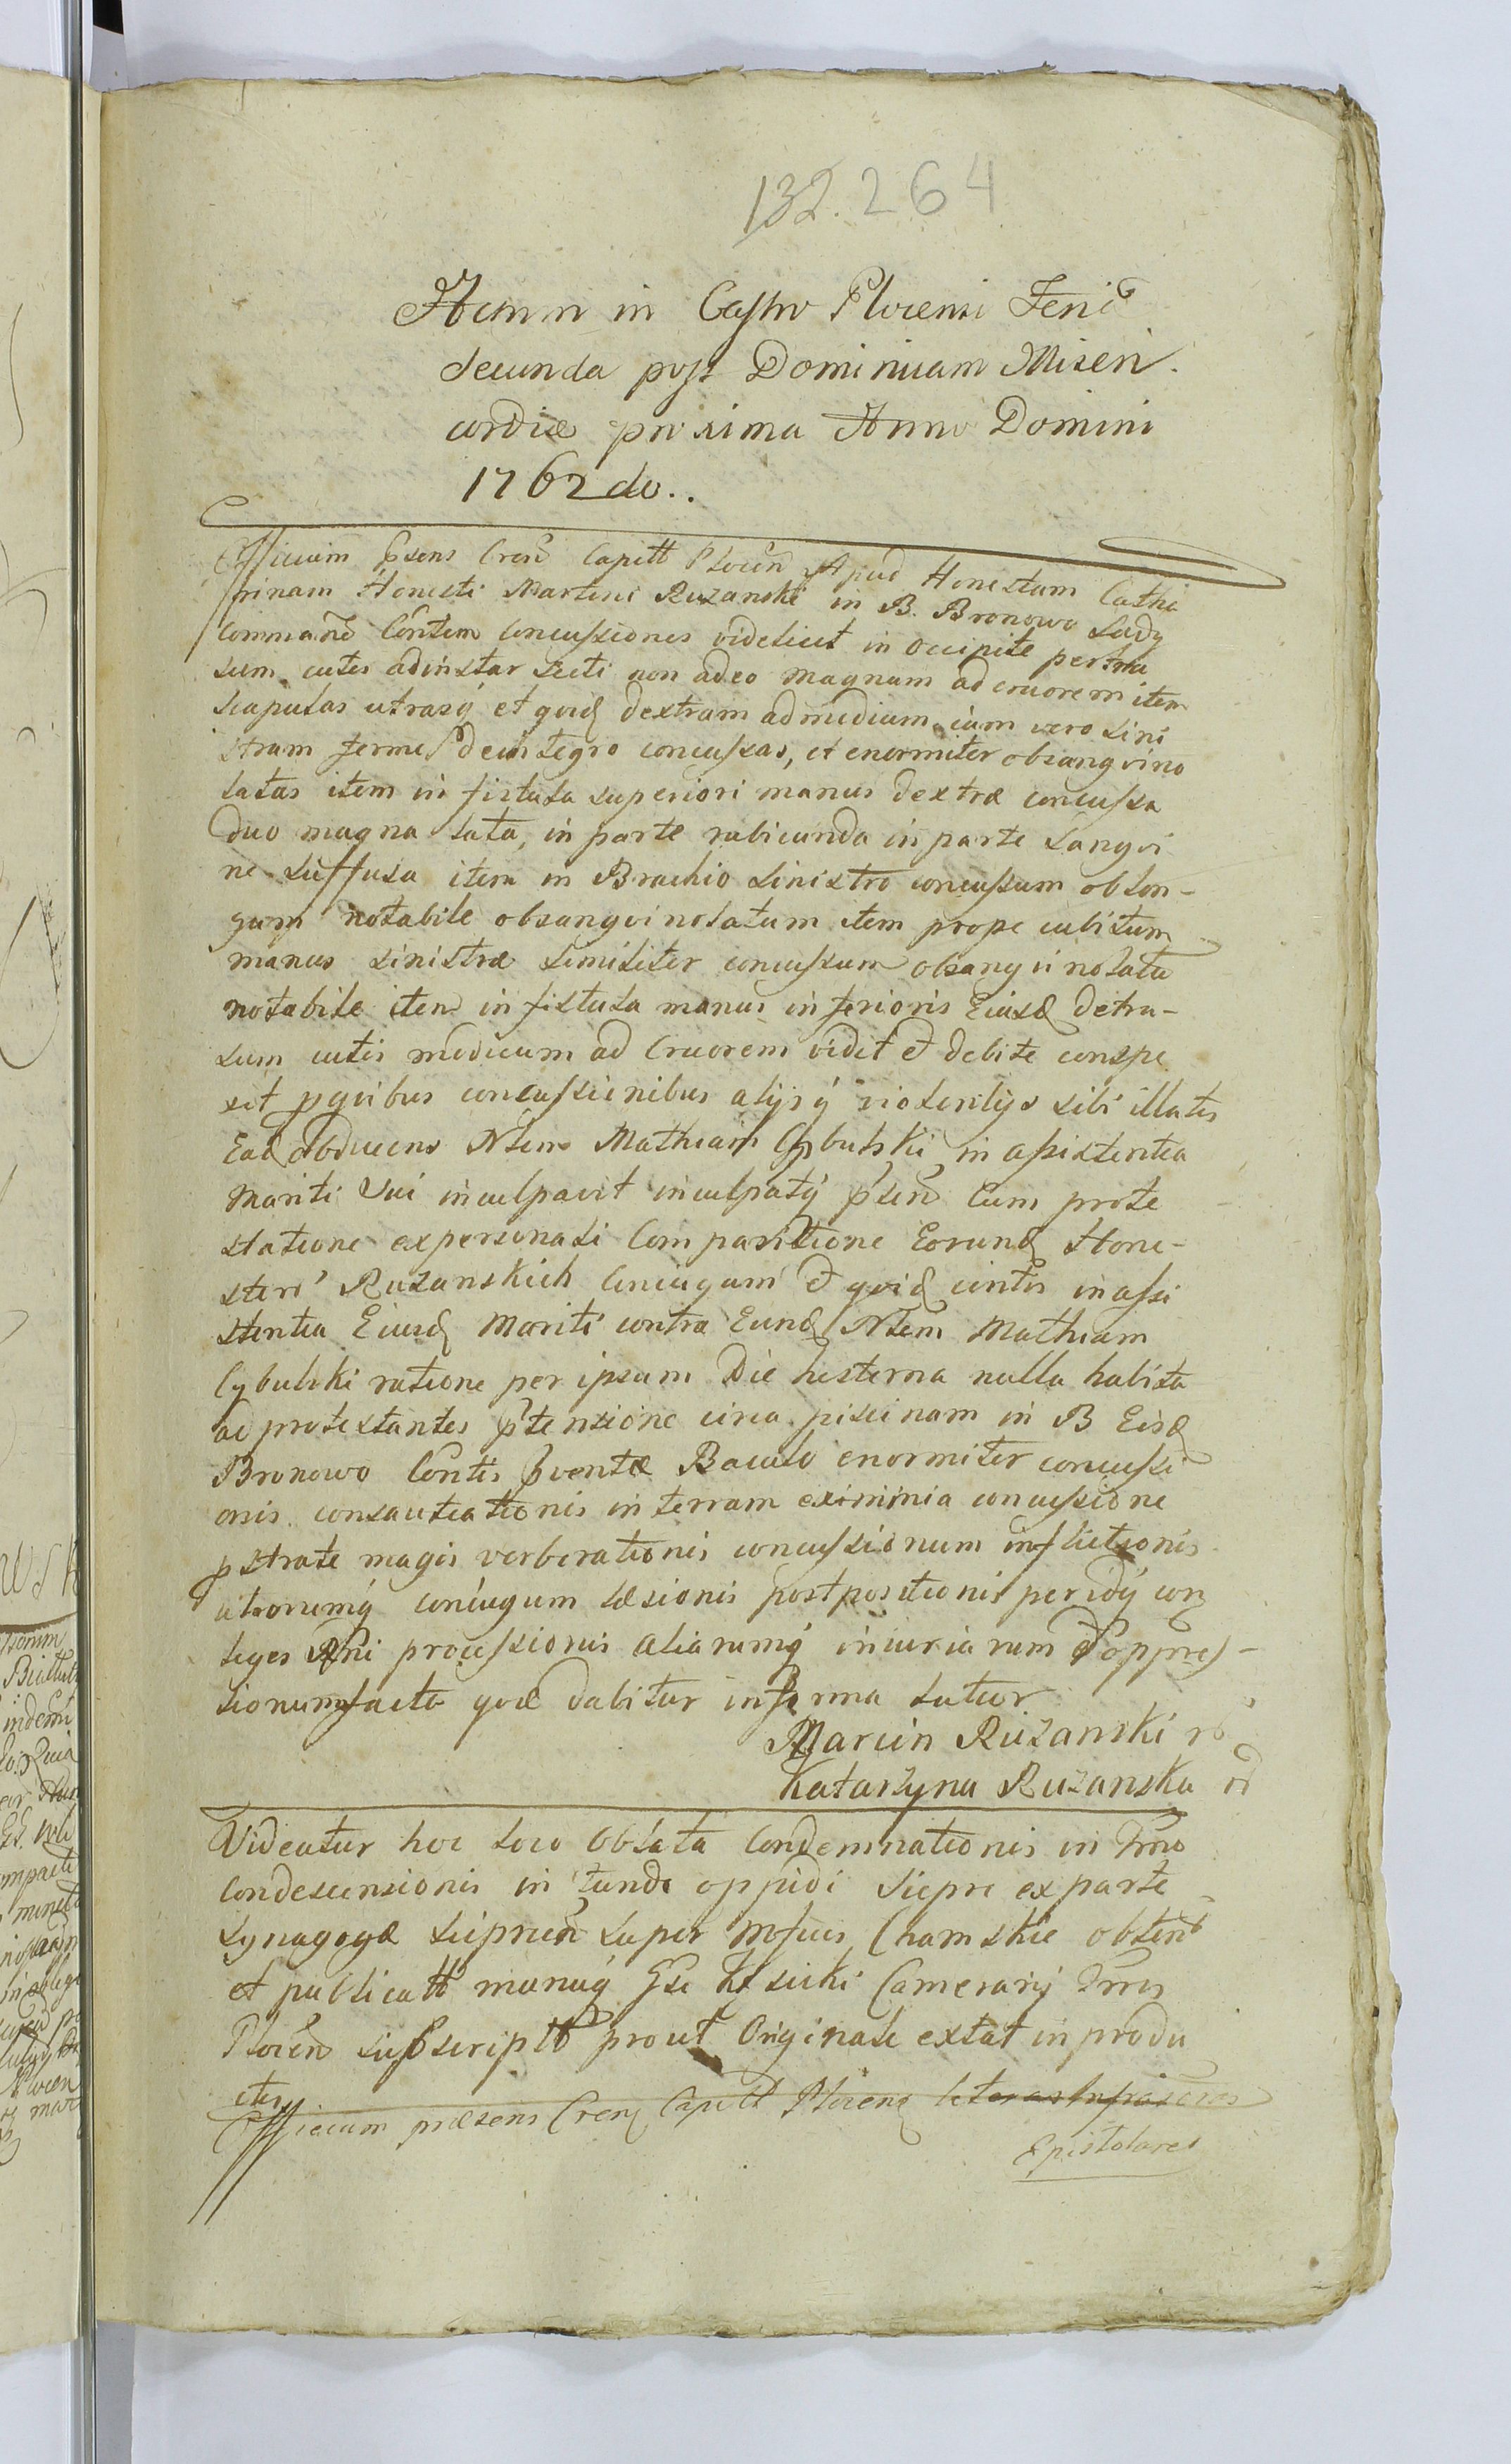 132. 264
Actum in Castro Plocensi Feria
Secunda post Dominicam Miseri-
cordiæ proxima Anno Domini
1762do..
Officium Psens Cren Capitt Plocen Apud Honestam Catha
rinam Honesti Martini Ruzanski in B. Bronowo Sudg
Commanē Contem Concussiones videlicet in occipite pertra
sum cutis adinstar secti non adeo magnum ad cruorem item
Scapulas utrasq et quid dextram admedium eam vero sini
stram ferme deintegro concussas, et enormiter obsangvino
latas item in fistula superiori manus dextræ concussa
duo magna lata, in parte rubicunda in parte sangvi
ne suffusa item in Brachio sinistro concussum oblon-
gum notabile obsangvinolatum item prope cubitum
manus sinistræ similiter concussum obsangvinolatu
notabile item in fistula manus inferioris Eiusd detra-
sum cutis modicum ad Cruorem vidit et debite conspe
xit pquibus concussionibus alijsq violentijs sibi illatis
Ead obducens Ntem Mathiam Cybulski in assistentia
Mariti Sui inculpavit inculpatq psen Cum prote
statione expersonali Comparitione Eorund Hone-
stor Ruzanskich Coniugum et quid cintis in assi
stentia Eiusd Mariti contra Eund Ntem Mathiam
Cybulski ratione per ipsum Die hesterna nulla habita
ad protestantes ptensione circa piscinam in B Eisd
Bronowo Contis pventæ Baculo enormiter concussi
onis consauciationis in terram eximinia concussione
pstratæ magis verberationis concussionum inflictionis
utrorumq coniugum læsionis postpositionis peridq con
leges Rni processionis aliarumq iniuriarum et oppres-
sionum facto quæ dabitur in forma latior
Marcin Ruzanski
Katarzyna Ruzanska
Videatur hoc loco Oblata Condemnationis in Trno
Condescensionis in fundo oppidi Siepre exparte
Synagogæ Sieprcen super Mfcus Chamskie obtent
et publicatt manuq Gsi Camerarij Trris
Plocen subscriptt prout Originale extat in produ
ctis
Officium præsens Cren Capitt Plocens literas
Epistolares